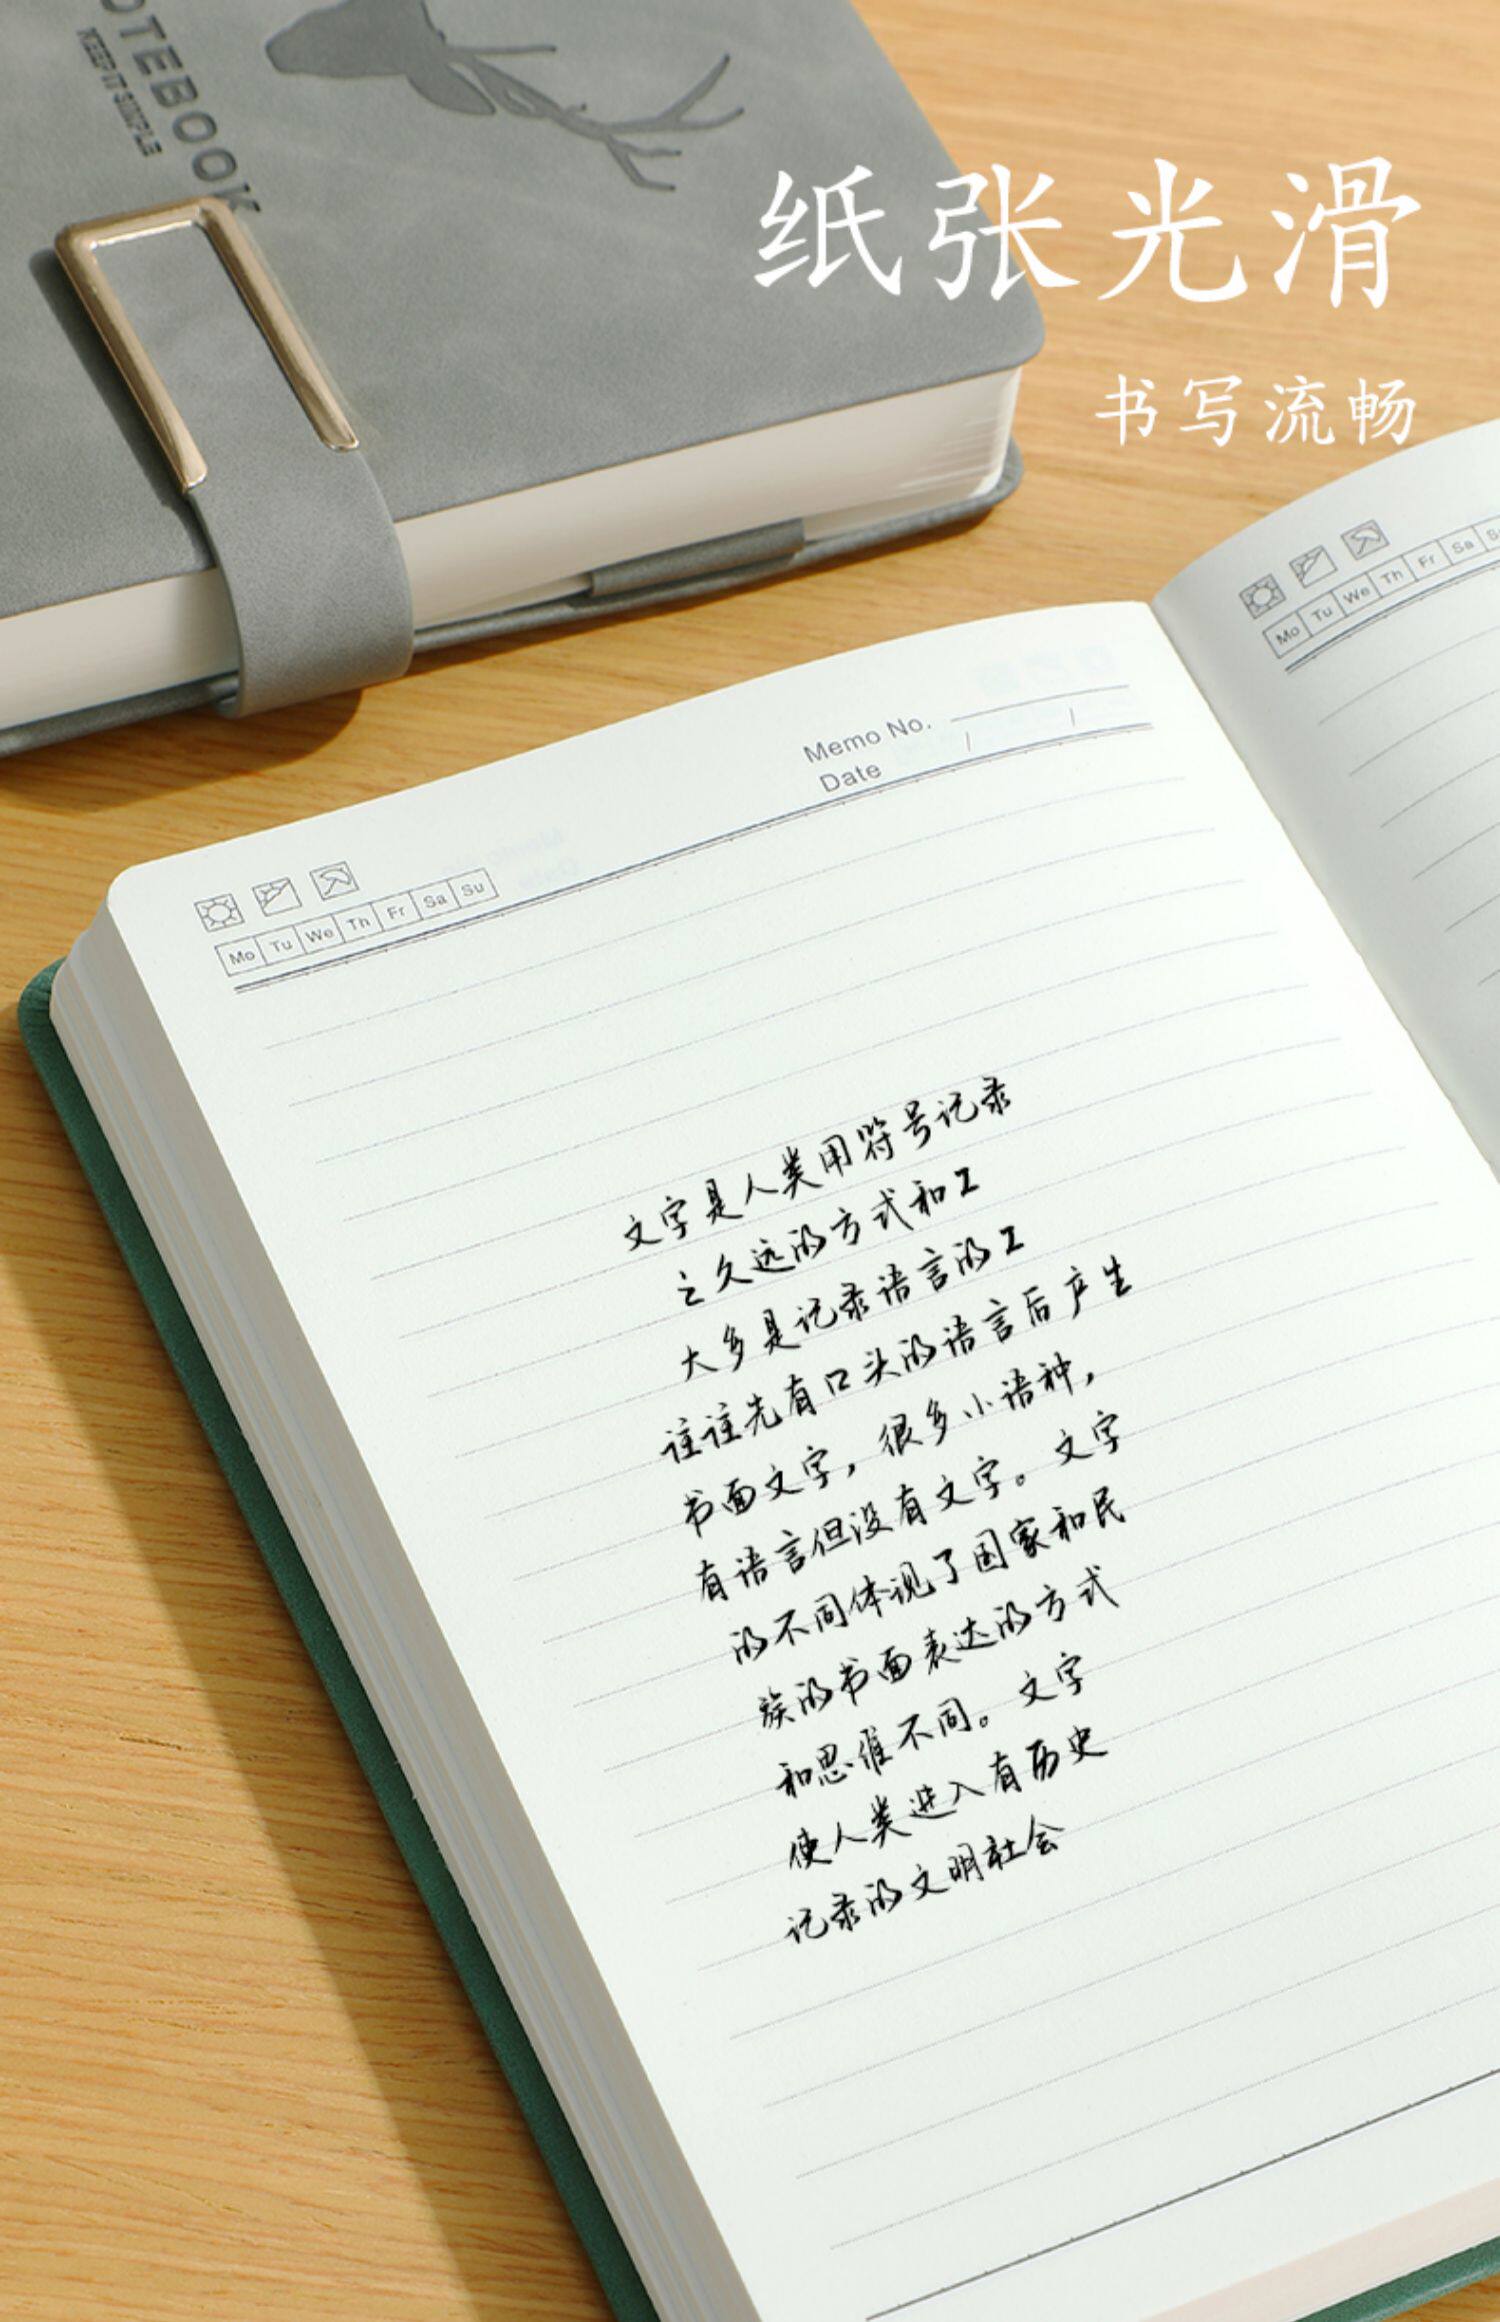 NOTEBOOK
KEEP IT SIMPLE
纸张光滑
书写流畅
Mo Tu We Th Fr Sa S
Memo No.
Date / /
Mo Tu We Th Fr Sa Su
文字是人类用符号记录
之久远的方式和工
大多是记录语言的工
往往先有口头的语言后产生
书面文字，很多小语种，
有语言但没有文字。文字
的不同体现了国家和民
族的书面表达的方式
和思维不同。文字
使人类进入有历史
记录的文明社会